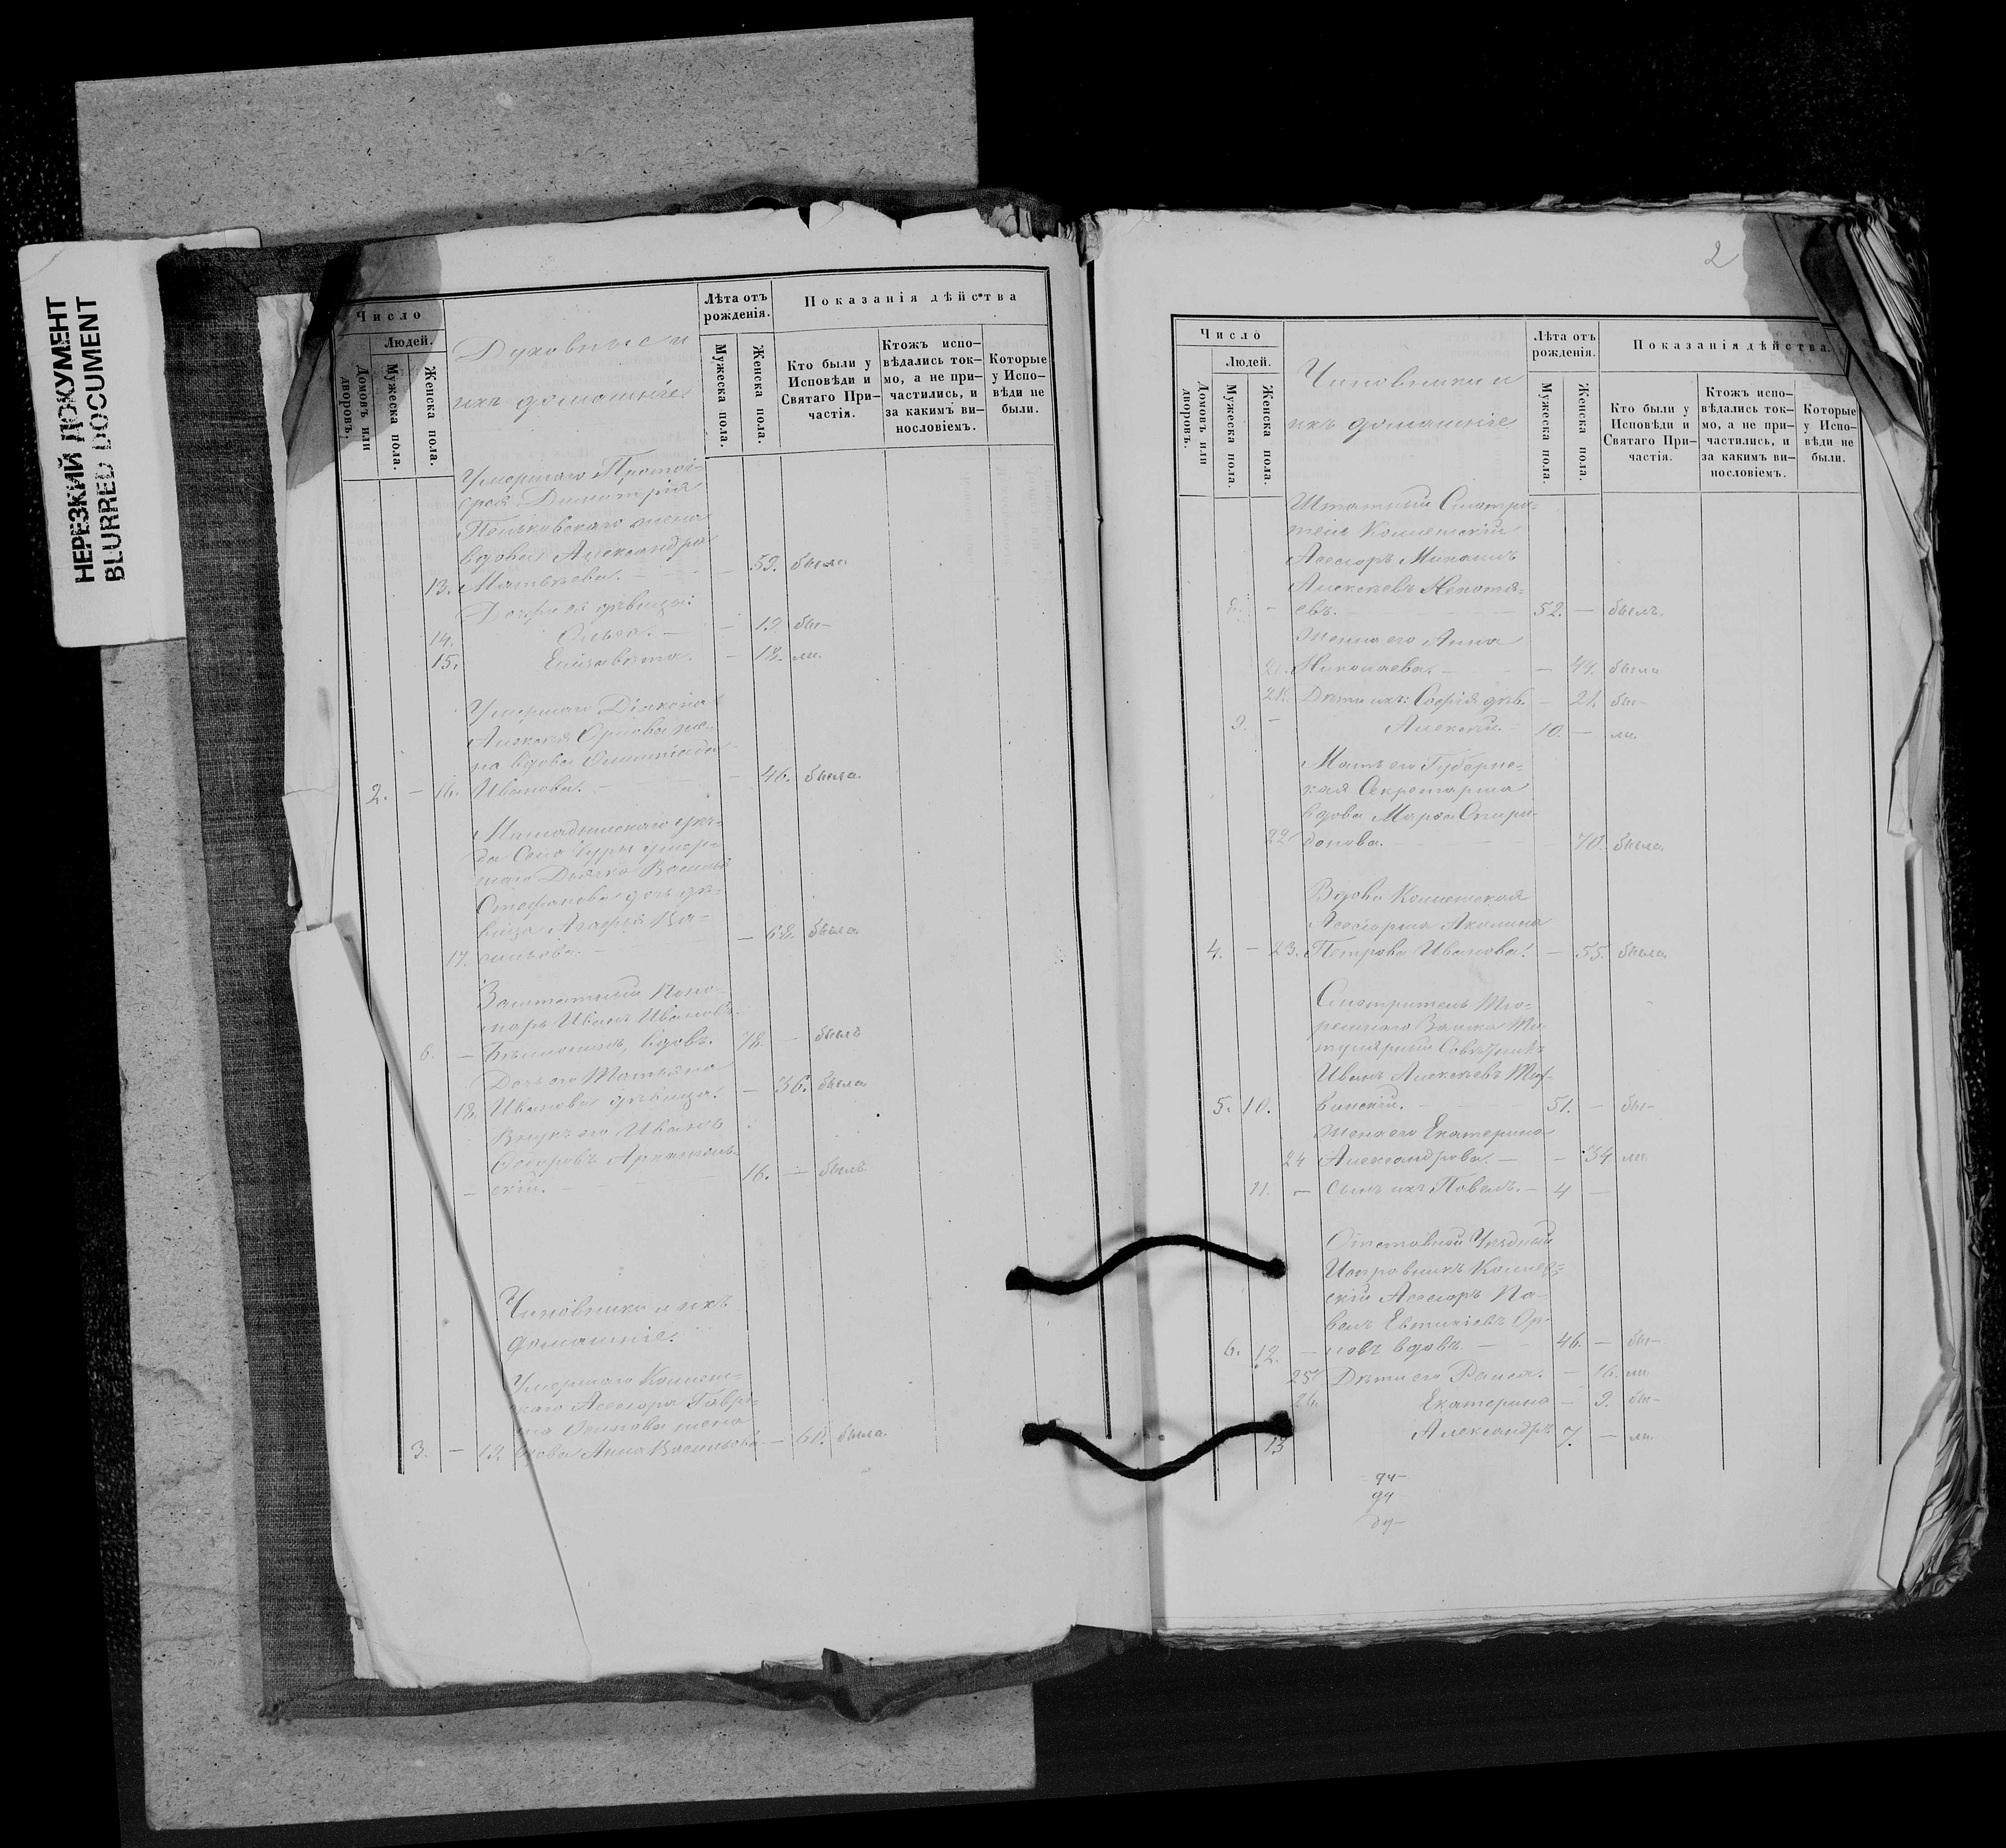 НЕРЕЗКИЙ ДОКУМЕНТ
BLURRED DOCUMENT
Число
Людей.
Домовъ или дворовъ.
Мужеска пола.
Женска пола.
Духовные и
ихъ домашніе
Лѣта отъ рожденія.
Мужеска пола.
Женска пола.
Показанія дѣйства
Кто были у Исповѣди и Святаго При-
частія.
Ктожъ испо-
вѣдались ток-
мо, а не при-
частились, и
за какимъ ви-
нословіемъ.
Которые
у Испо-
вѣди не
были.
Умершаго Протоі-
ерея Димитрія
жена
вдова Александра
13. Матвѣева. — — 59. была
Дочери ея дѣвицы:
14. Ольга. — — 19. бы-
15. Елизавета. — 18. ли.
Умершаго Діакона
Алексѣя Орлова же-
на вдова Олимпіада
2. — 16. Иванова. — — 46. была.
уѣз-
да Села умер-
шаго Дьячка Василья
Стефанова дочь дѣ-
вица Агафья Ва-
17. сильева. — — 68. была
Заштатный Поно-
марь Иванъ Ивановъ
6. — вдовъ. 78. — былъ
Дочь его Татьяна
18. Иванова дѣвица. — 36. была
Внукъ его Иванъ
Ѳедоровъ
— скій. — 16. — былъ
Чиновники и ихъ
домашніе.
Умершаго Коллеж-
скаго Асессора Гаври-
ла Осипова жена
3. — 19. вдова Анна Васильева. — 61. была.
2
Число
Людей.
Домовъ или дворовъ.
Мужеска пола.
Женска пола.
Чиновники и
ихъ домашніе
Лѣта отъ рожденія.
Мужеска пола.
Женска пола.
Показанія дѣйства.
Кто были у
Исповѣди и
Святаго При-
частія.
Ктожъ испо-
вѣдались ток-
мо, а не при-
частились, и
за какимъ ви-
нословіемъ.
Которые
у Испо-
вѣди не
были.
Штатный Смотри-
тель Коллежскій
Асессоръ Михаилъ
Алексѣевъ
8. — евъ. — 52. — былъ.
Жена его Анна
20. Николаева. — — 44. была
21. Дѣти ихъ: Софія дѣв. — 21. бы-
9. — Алексѣй. — 10. — ли.
Мать его Губернс-
кая Секретарша
вдова Марѳа Спири-
22 донова. — — 70. была
Вдова Коллежская
Асессорша Акилина
4. — 23. Петрова Иванова. — 55. была
Смотритель Тю-
ремнаго Замка Ти-
тулярный Совѣтникъ
Иванъ Алексѣевъ
5. 10. винскій. — 51. — бы-
Жена его Екатерина
24 Александрова. — — 34 ли.
11. — Сынъ ихъ Павелъ. — 4 —
Отставный Уѣздный
Исправникъ Коллеж-
скій Асессоръ Па-
велъ Евтихіевъ Ор-
6. 12. — ловъ вдовъ — 46. — бы-
25. Дѣти его Раиса. — 16. ли
26. Екатерина — 9. бы-
13 Александръ 7. — ли.